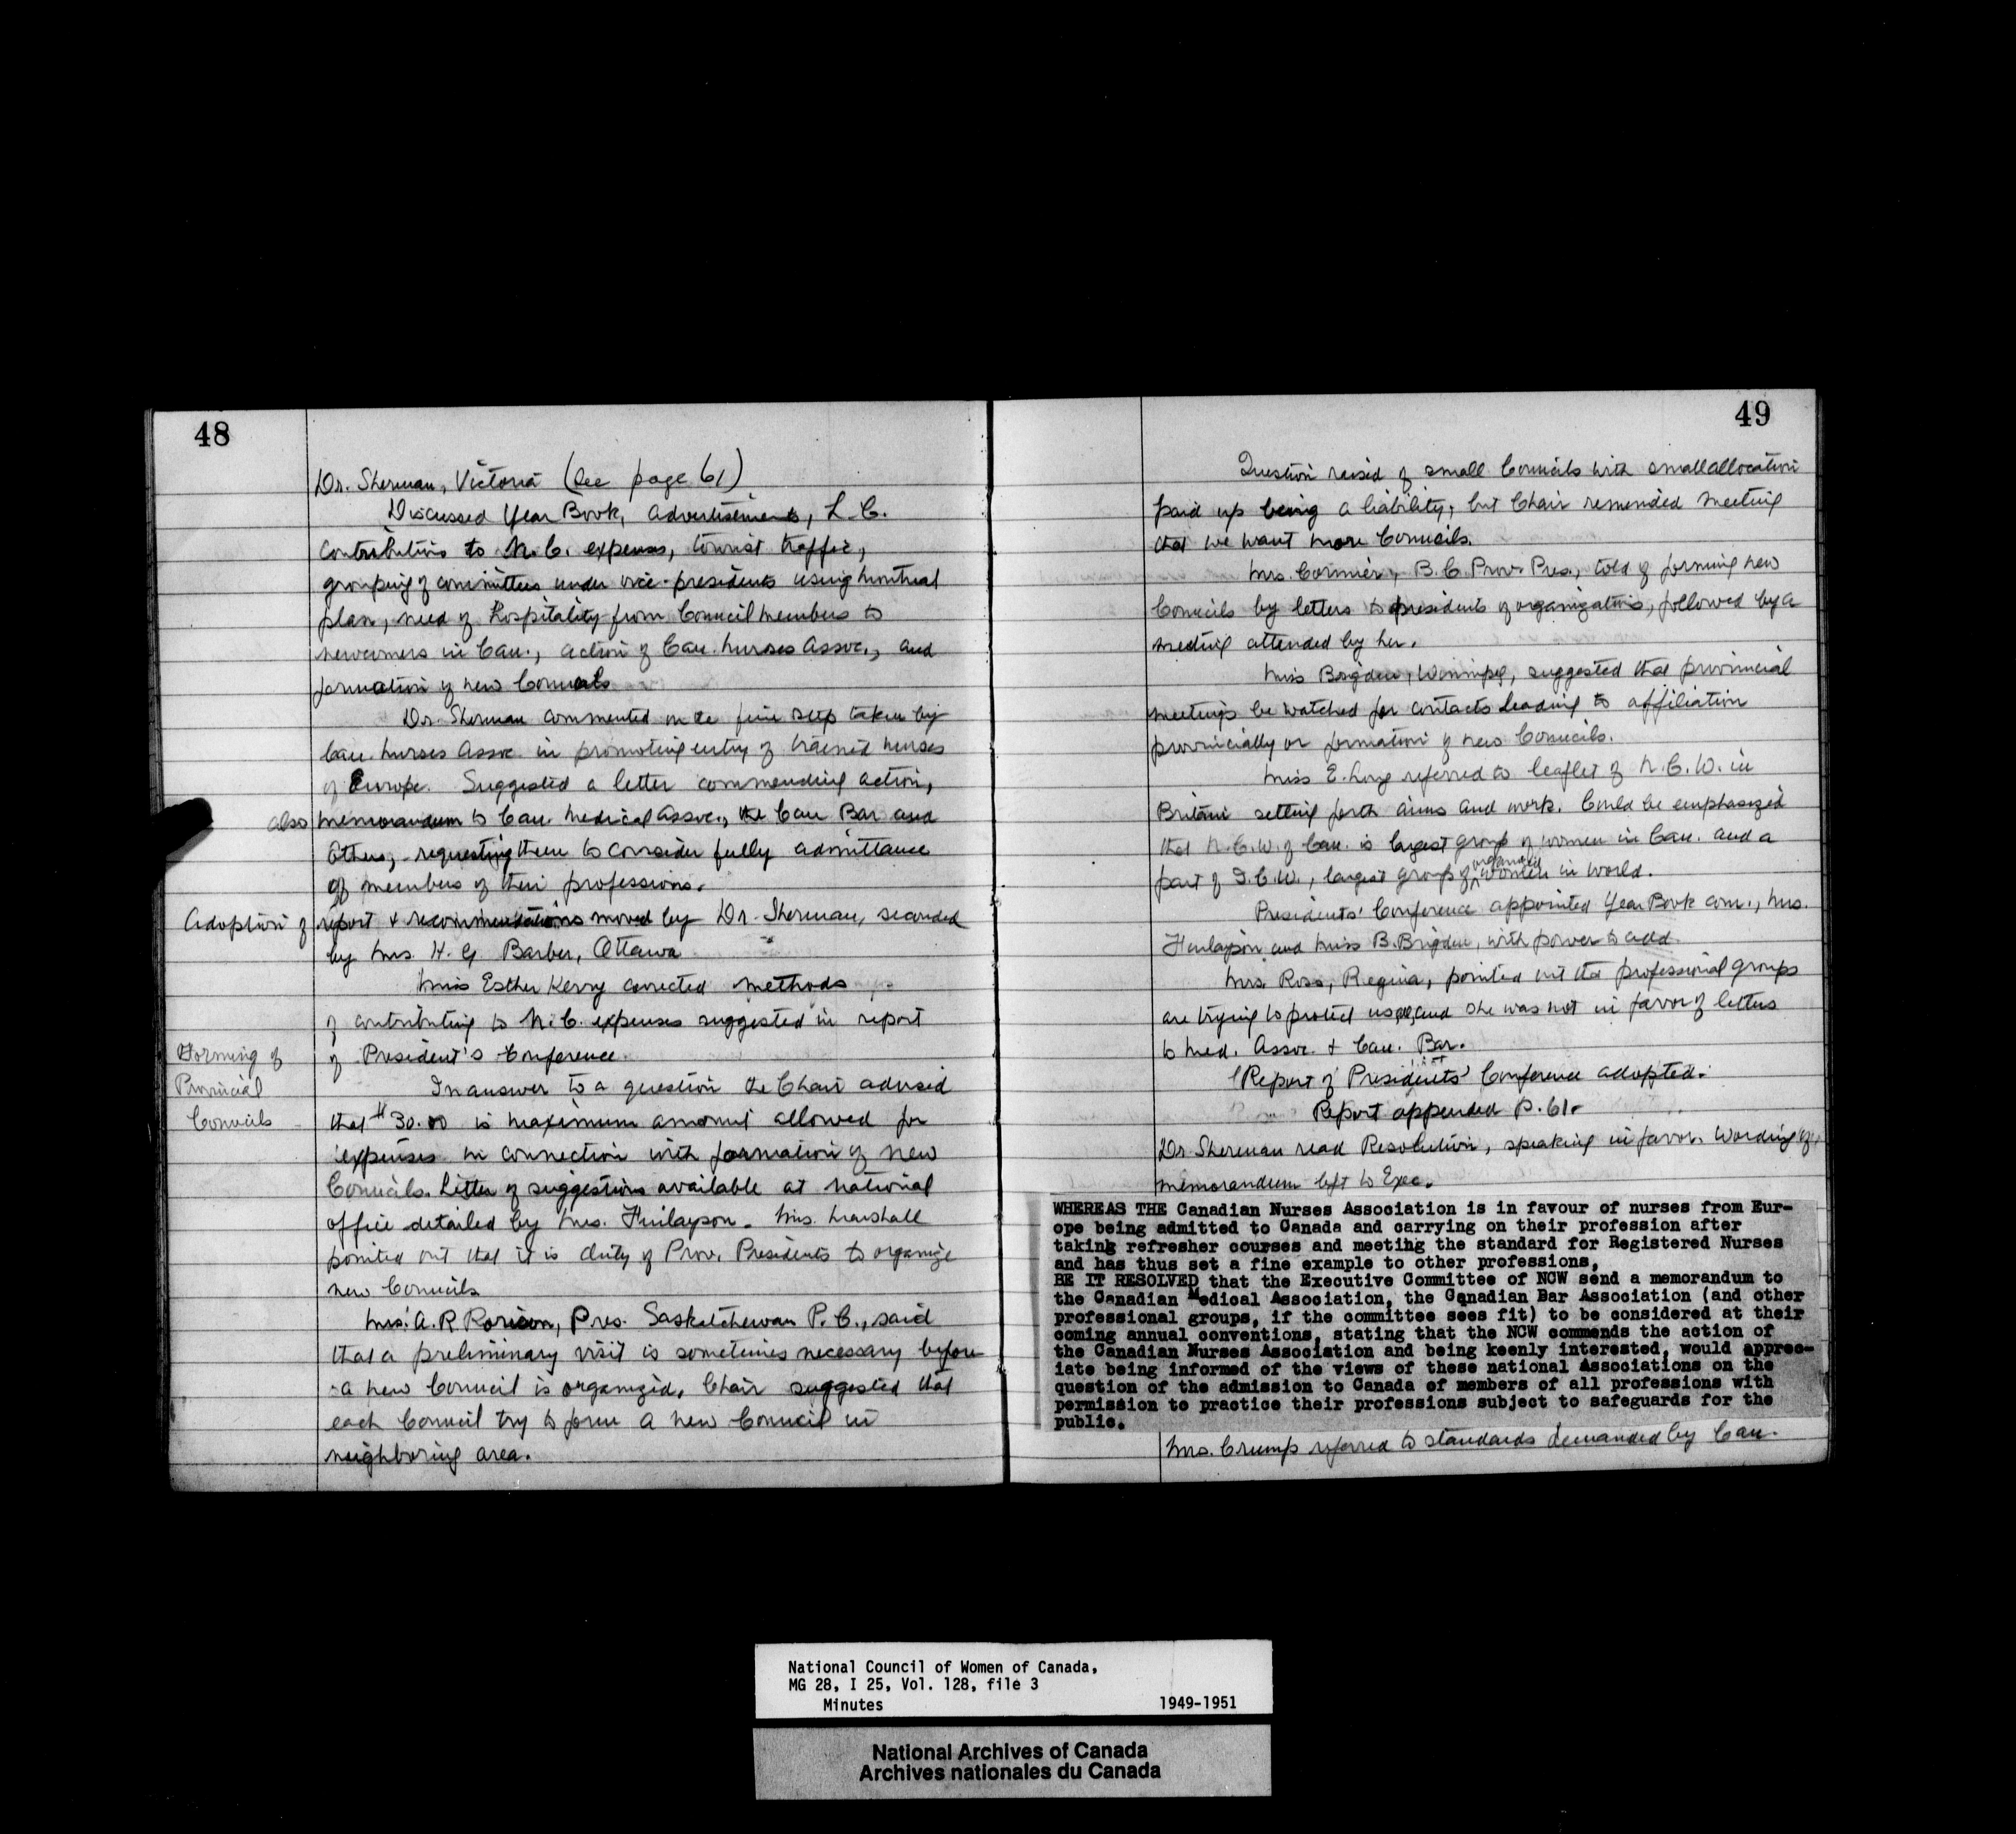 48
Dr. Sherman, Victoria (See page 61)
Discussed Year Book, advertisements, L.C.
contributions to N.C. expenses, tourist traffic,
grouping of committees under vice-presidents using Montreal
plan, need of hospitality from Council members to
newcomers in Can., action of Can. Nurses Assoc., and
formation of new Councils
Dr. Sherman commented on the fine step taken by
Can. Nurses Assoc. in promoting entry of trained nurses
of Europe. Suggested a letter commending action,
also memorandum to Can. Medical Assoc., the Can Bar and
others, requesting them to consider fully admittance
of members of their professions.
Adoption of report & recommendations moved by Dr. Sherman, seconded
by Mrs. H. G. Barber, Ottawa
Miss Esther Kerry corrected methods
of contributing to N.C. expenses suggested in report
of President's Conference.
Forming of
Provincial
Councils
In answer to a question the Chair advised
that $30.00 is maximum amount allowed for
expenses in connection with formation of new
Councils. Letter of suggestions available at national
office detailed by Mrs. Finlayson. Mrs. Marshall
pointed out that it is duty of Prov. Presidents to organize
new Councils
Mrs. A. R. Rorison, Pres. Saskatchewan P.C., said
that a preliminary visit is sometimes necessary before
a new Council is organized. Chair suggested that
each Council try to form a new Council in
neighboring area.
49
Question raised of small Councils with small allocation
paid up being a liability, but Chair reminded meeting
that we want more Councils.
Mrs. Cormier, B.C. Prov. Pres., told of forming new
Councils by letters to presidents of organizations, followed by a
meeting attended by her.
Miss Brigden, Winnipeg, suggested that provincial
meetings be watched for contacts leading to affiliation
provincially or formation of new Councils.
Miss E. Long referred to leaflet of N.C.W. in
Britain setting forth aims and work. Could be emphasized
that N.C.W. of Can. is largest group of women in Can. and a
part of I.C.W., largest group of organized women in world.
Presidents' Conference appointed Year Book com., Mrs.
Finlayson and Miss B. Brigden, with power to add.
Mrs. Ross, Regina, pointed out that professional groups
are trying to protect us, and she was not in favor of letters
to Med. Assoc. & Can. Bar.
Report of Presidents' Conference adopted.
Report appended P. 61.
Dr Sherman read Resolution, speaking in favor. Wording of
memorandum left to Exec.
WHEREAS THE Canadian Nurses Association is in favour of nurses from Eur-
ope being admitted to Canada and carrying on their profession after
taking refresher courses and meeting the standard for Registered Nurses
and has thus set a fine example to other professions,
BE IT RESOLVED that the Executive Committee of NCW send a memorandum to
the Canadian Medical Association, the Canadian Bar Association (and other
professional groups, if the committee sees fit) to be considered at their
coming annual conventions, stating that the NCW commends the action of
the Canadian Nurses Association and being keenly interested, would apprec-
iate being informed of the views of these national Associations on the
question of the admission to Canada of members of all professions with
permission to practice their professions subject to safeguards for the
public.
Mrs. Crump referred to standards demanded by Can.
National Council of Women of Canada,
MG 28, I 25, Vol. 128, file 3
Minutes 1949-1951
National Archives of Canada
Archives nationales du Canada